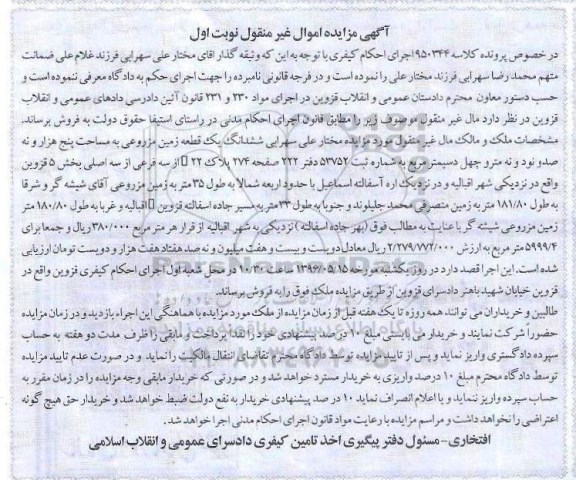 آگهی مزایده اموال غیر منقول نوبت اول
در خصوص پرونده کلاسه ۹۵۰۳۴۴ اجرای احکام کیفری با توجه به این که وثیقه گذار اقای مختار علی سهرابی فرزند غلام علی ضمانت
متهم محمد رضا سهرابی فرزند مختار علی را نموده است و در فرجه قانونی نامبرده را جهت اجرای حکم به دادگاه معرفی ننموده است و
حسب دستور معاون محترم دادستان عمومی و انقلاب قزوین در اجرای مواد ۲۳۰ و ۲۳۱ قانون آئین دادرسی دادهای عمومی و انقلاب
قزوین در نظر دارد مال غیر منقول موصوف زیر را مطابق قانون اجرای احکام مدنی در راستای استیفا حقوق دولت به فروش برساند.
مشخصات ملک و مالک مال غیر منقول مورد مزایده مختار علی سهرابی ششدانگ یک قطعه زمین مزروعی به مساحت پنج هزار و نه
صد و نود و نه متر و چهل دسیمتر مربع به شماره ثبت ۵۳۷۵۲ دفتر ۲۲۲ صفحه ۲۷۴ پلاک ۲۲ از سه فرعی از سه اصلی بخش ۵ قزوین
واقع در نزدیکی شهر اقبالیه و در نزدیک اره آسفالته اسماعیل با حدود اربعه شمالا به طول ۳۵ متر به زمین مزروعی آقای شیشه گر و شرقا
به طول ۱۸۱/۸۰ متر به زمین متصرفی محمد جلیلوند و جنوبا به طول ۳۳ متر به مسیر جاده اسفالته قزوین اقبالیه و غربا به طول ۱۸۰/۸۰ متر
زمین مزروعی شیشه گر با عنایت به مطالب فوق (بهر جاده اسفالته) نزدیکی به شهر اقبالیه از قرار هر متر مربع ۳۸۰/۰۰۰ ریال و جمعا برای
۵۹۹۹/۴ متر مربع به ارزش ۲/۲۷۹/۷۷۲/۰۰۰ ریال معادل دویست و بیست و هفت میلیون و نه صد هفتاد هفت هزار و دویست تومان ارزیابی
شده است. این اجرا قصد دارد در روز یکشنبه مورخه ۱۳۹۶/۰۵/۱۵ ساعت ۱۰/۳۰ در محل شعبه اول اجرای احکام کیفری قزوین واقع در
قزوین خیابان شهید باهنر دادسرای قزوین از طریق مزایده ملک فوق را به فروش برساند.
طالبین و خریداران می توانند همه روزه تا یک هفته قبل از زمان مزایده از ملک مورد مزایده با هماهنگی این اجراء بازدید و در زمان مزایده
حضوراً شرکت نمایند و خریدار می بایستی مبلغ ۱۰ درصد پیشنهادی خود را نقدا پرداخت و مابقی را ظرف مدت دو هفته به حساب
سپرده دادگستری واریز نماید و پس از تایید مزایده توسط دادگاه محترم تقاضای انتقال مالکیت را نماید و در صورت عدم تایید مزایده
توسط دادگاه محترم مبلغ ۱۰ درصد واریزی به خریدار مسترد خواهد شد و در صورتی که خریدار مابقی وجه مزایده را در زمان مقرر به
حساب سپرده واریز ننماید و با اعلام انصراف نماید ۱۰ درصد پیشنهادی خریدار به نفع دولت ضبط خواهد شد و خریدار حق هیچ گونه
اعتراضی را نخواهد داشت و مراسم مزایده با رعایت مواد قانون اجرای احکام مدنی اجرا خواهد شد.
افتخاری- مسئول دفتر پیگیری اخذ تامین کیفری دادسرای عمومی و انقلاب اسلامی